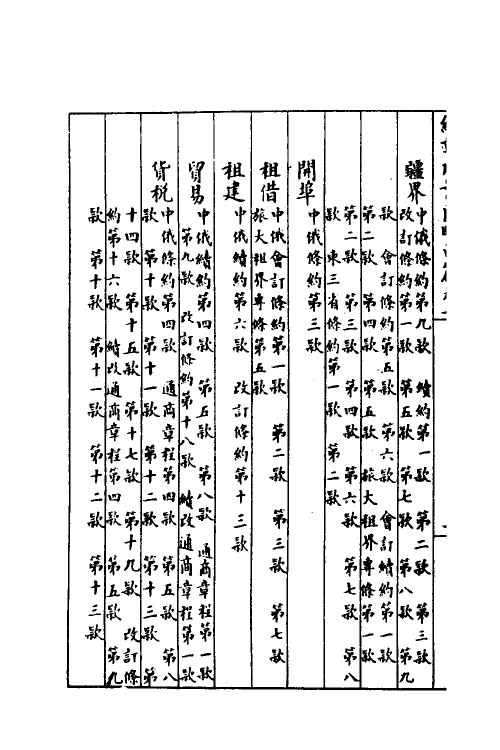 疆界
中俄條約第九款 續約第一款 第二款 第三款
改訂條約第一款 第五款 第七款 第八款 第九
款 會訂條約第五款 第六款 會訂續約第一款
第二款 第四款 第五款 旅大租界專條第一款
第二款 第三款 第四款 第六款 第七款 第八
款 東三省條約第一款 第二款
開埠
中俄條約第三款
租借
中俄會訂條約第一款 第二款 第三款 第七款
旅大租界專條第五款
租建
中俄續約第六款 改訂條約第十三款
貿易
中俄續約第四款 第五款 第八款 通商章程第一款
第九款 改訂條約第十八款 續改通商章程第一款
貨稅
中俄條約第四款 通商章程第四款 第五款 第八
款 第十款 第十一款 第十二款 第十三款 第
十四款 第十五款 第十七款 第十九款 改訂條
約第十六款 續改通商章程第四款 第五款 第九
款 第十款 第十一款 第十二款 第十三款